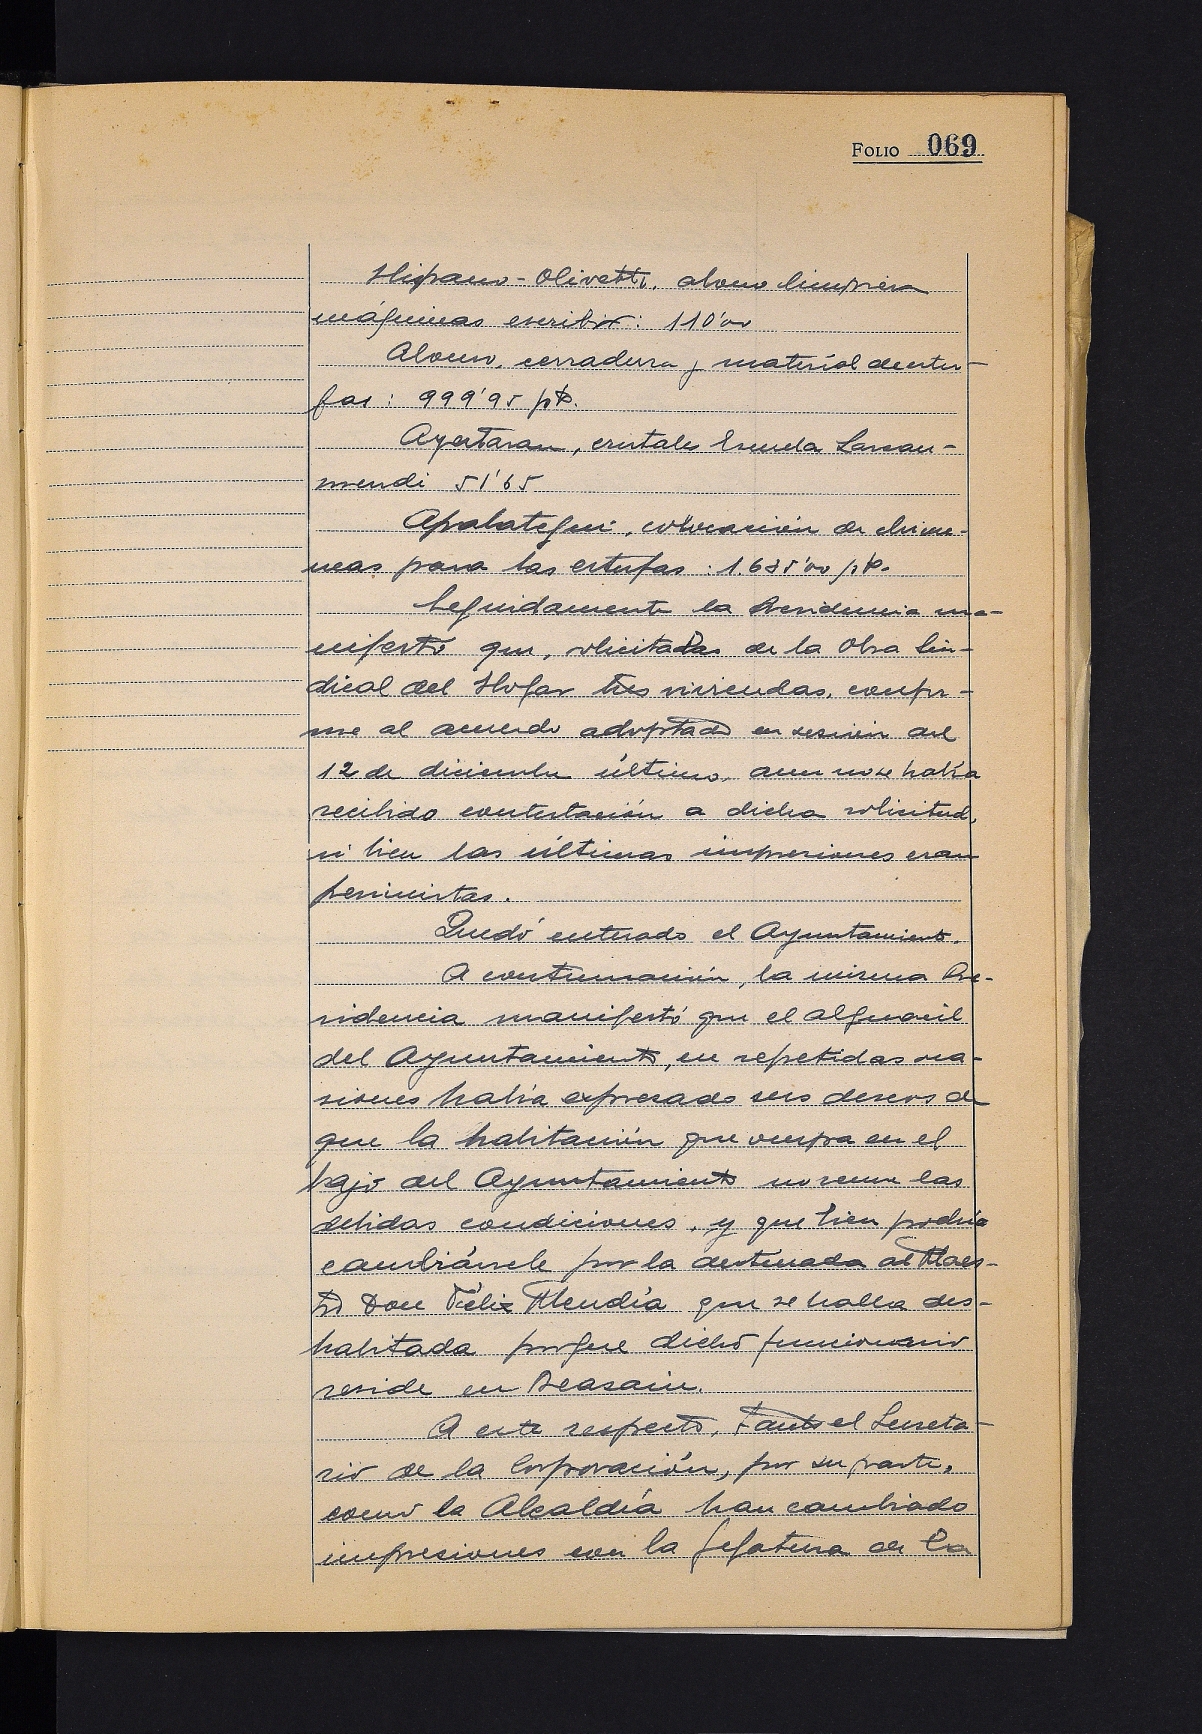 FOLIO 069
Hispano-Olivetti, abono limpieza
máquinas escribir: 110'00
Alonso, cerradura y material de estu-
fas: 999'95 pts.
Ayestaran, cristales Escuela Larsan-
mendi 51'65
Apalategui, colocación de chime-
neas para las estufas: 1.635'00 pts.
Seguidamente la Presidencia ma-
nifestó que, solicitadas de la Obra Sin-
dical del Hogar tres viviendas, confor-
me al acuerdo adoptado en sesión del
12 de diciembre último, aun no se había
recibido contestación a dicha solicitud,
si bien las últimas impresiones eran
pesimistas.
Quedó enterado el Ayuntamiento.
A continuación, la misma Pre-
sidencia manifestó que el alguacil
del Ayuntamiento, en repetidas oca-
siones había expresado sus deseos de
que la habitación que ocupa en el
bajo del Ayuntamiento no reune las
debidas condiciones, y que bien podría
cambiársele por la destinada al Maes-
tro Don Félix Mendía que se halla des-
habitada porque dicho funcionario
reside en Beasain.
A este respecto, tanto el Secreta-
rio de la Corporación, por su parte,
como la Alcaldía han cambiado
impresiones con la Jefatura de la